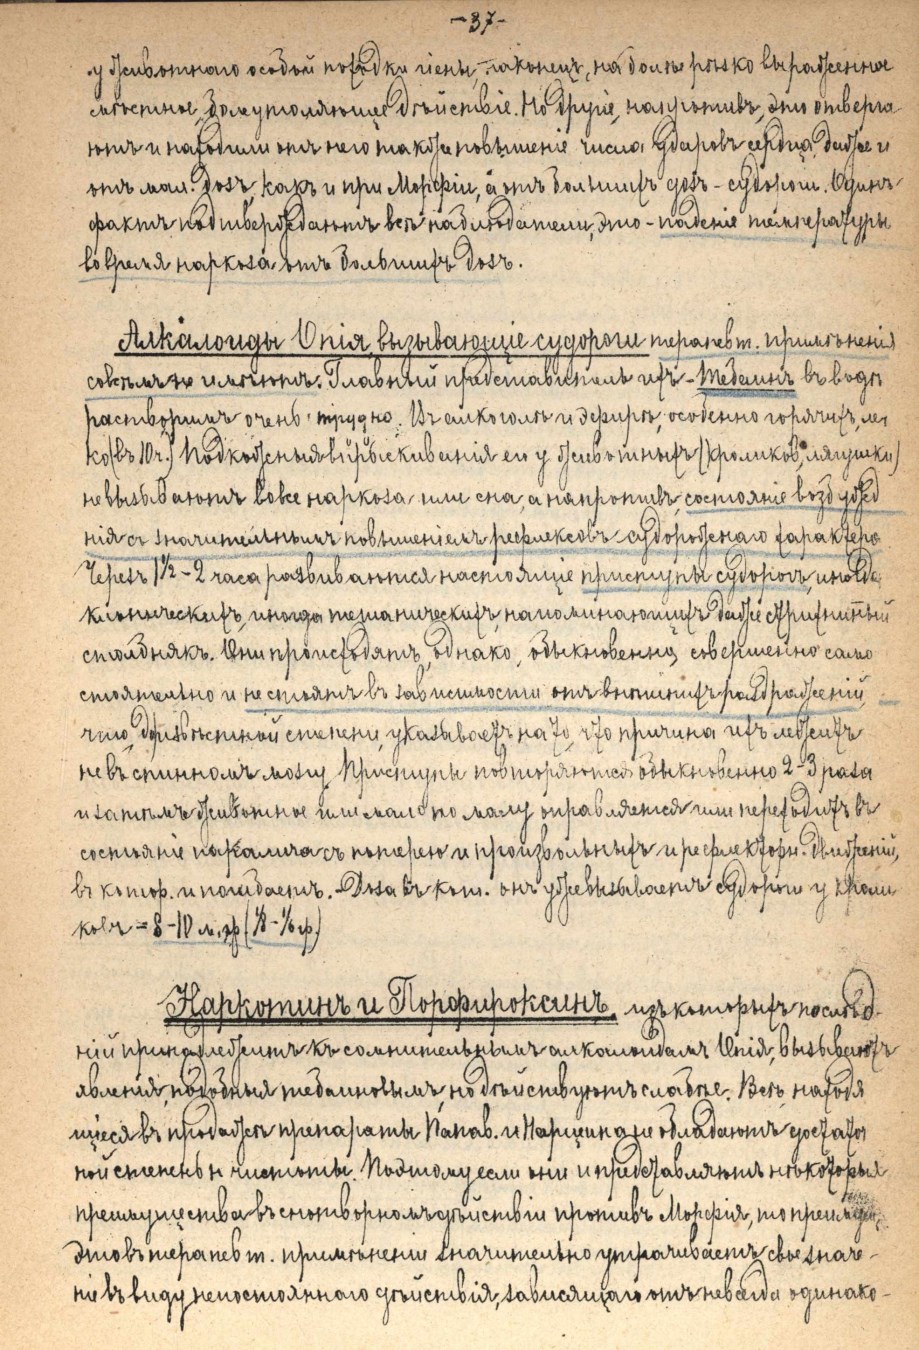 -37-
у животнаго особой походки гіены, наконецъ, на болѣе рѣзко выраженное
мѣстное, болеутоляющее дѣйствіе. Но другіе, напротивъ, это отверга
ютъ и находили отъ него также повышеніе числа ударовъ сердца, даже и
отъ мал. дозъ, какъ и при Морфіи, а отъ большихъ дозъ - судороги. Одинъ
фактъ подтверждаютъ всѣ наблюдатели, это - паденіе температуры
во время наркоза отъ большихъ дозъ.
Алкалоиды Опія, вызывающіе судороги терапевт. примѣненія
совсѣмъ не имѣютъ. Главный представитель ихъ - Тебаинъ въ водѣ
растворимъ очень трудно. Въ алкоголѣ и эфирѣ, особенно горячихъ, лег
ко (въ 10 ч.) Подкожныя впрыскиванія его у животныхъ (кроликовъ, лягушки)
не вызываютъ вовсе наркоза или сна, а напротивъ, состояніе возбужд
нія съ значительнымъ повышеніемъ рефлексовъ судорожнаго характера
Черезъ 1½ - 2 часа развиваются настоящіе приступы судорогъ, иногда
клоническихъ, иногда тетаническихъ, напоминающихъ даже стрихнинный
столбнякъ. Они происходятъ, однако, обыкновенно, совершенно само
стоятельно и не стоятъ въ зависимости отъ внѣшнихъ раздраженій,
что, до извѣстной степени, указываетъ на то, что причина ихъ лежитъ
не въ спинномъ мозгу. Приступы повторяются обыкновенно 2-3 раза
и затѣмъ животное или мало по малу оправляется или переходитъ въ
состояніе паралича съ потерею и произвольныхъ и рефлекторн. движеній,
въ котор. и погибаетъ. - Доза въ кот. онъ уже вызываетъ судороги у кроли
ковъ = 8-10 м.гр (⅛ - ⅙ гр.)
Наркотинъ и Порфироксинъ. изъ которыхъ послѣд-
ній принадлежитъ къ сомнительнымъ алкалоидамъ Опія, вызываютъ
явленія, подобныя тебаиновымъ, но дѣйствуютъ слабѣе. Всѣ, находя
щіеся въ продажѣ препараты Папав. и Нарцеина не обладаютъ достаточ
ной степенью чистоты. Поэтому если они и представляютъ нѣкоторыя
преимущества въ снотворномъ дѣйствіи противъ Морфія, то преимущ.
это въ терапевт. примѣненіи значительно утрачиваетъ свое значе-
ніе въ виду непостояннаго дѣйствія, зависящаго отъ не всегда одинако-